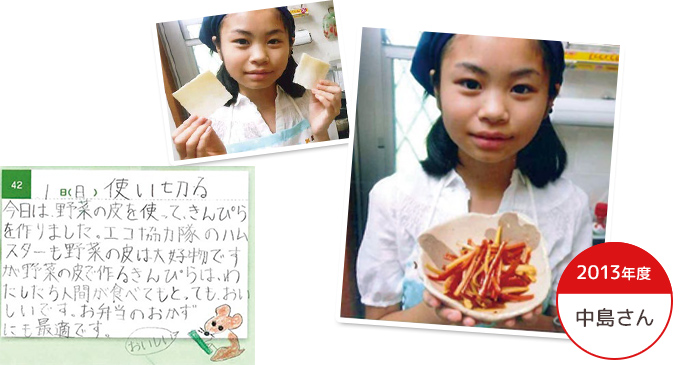 42
1日(日) 使い切る
今日は、野菜の皮を使って、きんぴら
を作りました。エコ協力隊のハム
スターも野菜の皮は大好物です
が野菜の皮で作るきんぴらは、わ
たしたち人間が食べてもとっても、おい
しいです。お弁当のおかず
にも最適です。
おいしい
2013年度
中島さん